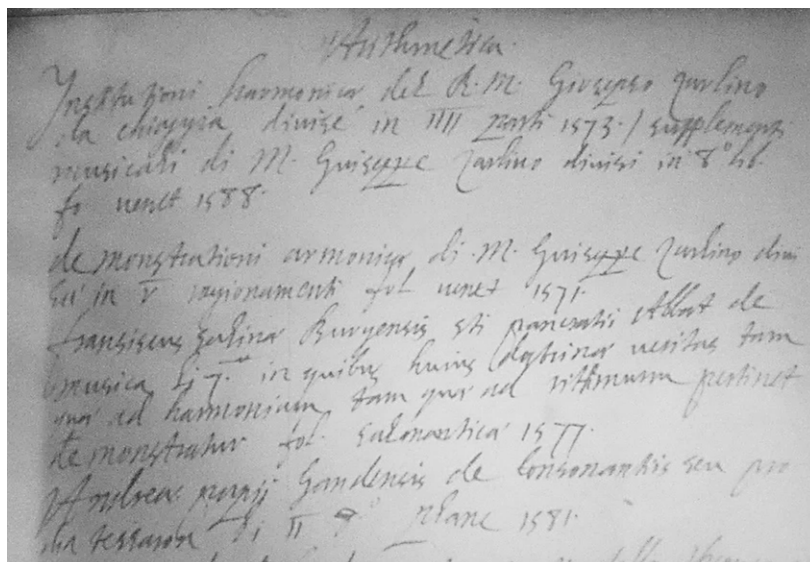 Arithmetica.
Institutioni harmonica del R. M. Giuseppo Zarlino
da chioggia divise in IIII parti 1573. / supplementi
musicali di M. Guiseppe Zarlino divisi in 8° lib.
fo venet 1588.
demonstrationi armoniche di M. Guiseppe Zarlino divi
se in V ragionamenti fol venet 1571.
fransiscus Salina Burgensis sti pancratii Abbat de
musica li 7. in quibus huius doctrinæ veritas tam
quæ ad harmoniam tam quæ ad rithmum pertinet
demonstratur fol. Salmantica 1577.
Andreæ papij Gandensis de Consonantiis seu pro
dia tessaron li II 8° plant 1581.